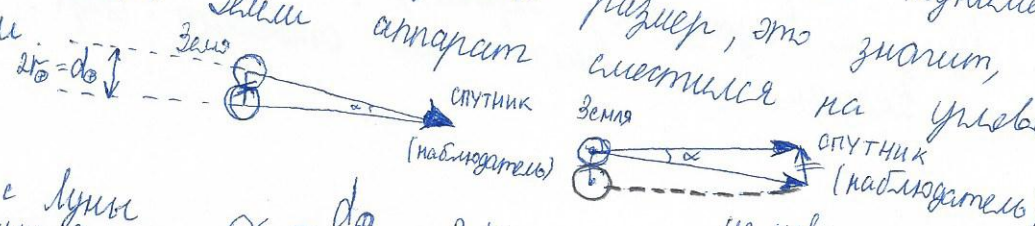 Земли аппарат
размер, это значит,
сместился на углов
Земля
2r⊕ = d⊕
α
спутник
(наблюдатель)
Земля
α
спутник
(наблюдатель
с Луны
d⊕